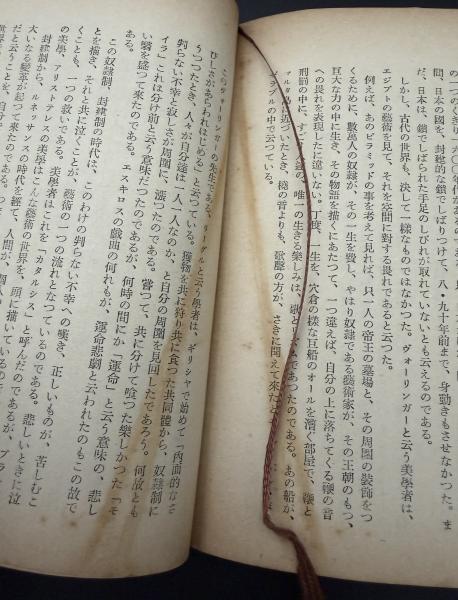 の一つのくぎり
間、日本の國を、封建的な鎖でしばりつけて、八・九十年前まで、身動きもさせなかつた。ま
だ、日本は、鎖でしばられた手足のしびれが取れていないとも云えるのである。
しかし、古代の世界も、決して一樣なものではなかつた。ヴォーリンガーと云う美學者は、
エジプトの藝術を見て、それを空間に對する畏れであると云つた。
例えば、あのピラミッドの事を考えて見れば、只一人の帝王の墓場と、その周圍の裝飾をつ
くるために、數萬人の奴隸が、その一生を費し、やはり奴隸である藝術家が、その王朝のもつ、
巨大な力の中に生き、その物語を描くにあたつて、一つ違えば、自分の上に落ちてくる鞭の音
への畏れを表現したに違いない。丁度、一生を、穴倉の樣な巨船のオールを漕ぐ部屋で、鞭と
刑罰の中に、すごす人達の、唯一の生きる樂しみは、歌と
であつたのである。あの船が、
マルタ島に近づいたとき、橈の音よりも、歌聲の方が、さきに聞えて來たと
の中で云つている。
このヴォーリンガーの先生である、リーグルと云う學者は、ギリシヤで始めて「内面的なさ
びしさがあらわれはじめる」と云つている。獲物を共に狩り共に食つた共同體から、奴隸制に
うつつたとき、人々が自分達は一人一人なのか、と自分の周圍を見回したであろう。何故とも
判らない不幸と寂しさが周圍に、漲つていたのである。嘗つて、共に分けて喰つた樂しかつた「モ
イラ」これは分け前と云う意味だつたのであるが、何時の間にか「運命」と云う意味の、悲し
い響を盛つて來たのである。エスキロスの戲曲の何れもが、運命悲劇と云われたのもこの故で
ある。
この奴隸制、封建制の時代は、このわけの判らない不幸への嘆き、正しいものが、苦しむこ
とを描き、それと共に泣くことが、藝術の一つの流れとなつているのである。悲しいときに泣
くことも、一つの救いである。アリストテレスの美學者はこれを「カタルシス」と呼んだのであるが、プラ
の美學、アリストテレスの美學はこんな藝術の世界を、頭に描いているので
封建制から、ルネッサンスの時代を經て、人間が、
大いなる變革が起つて來たのである。
だと云うことを、自分